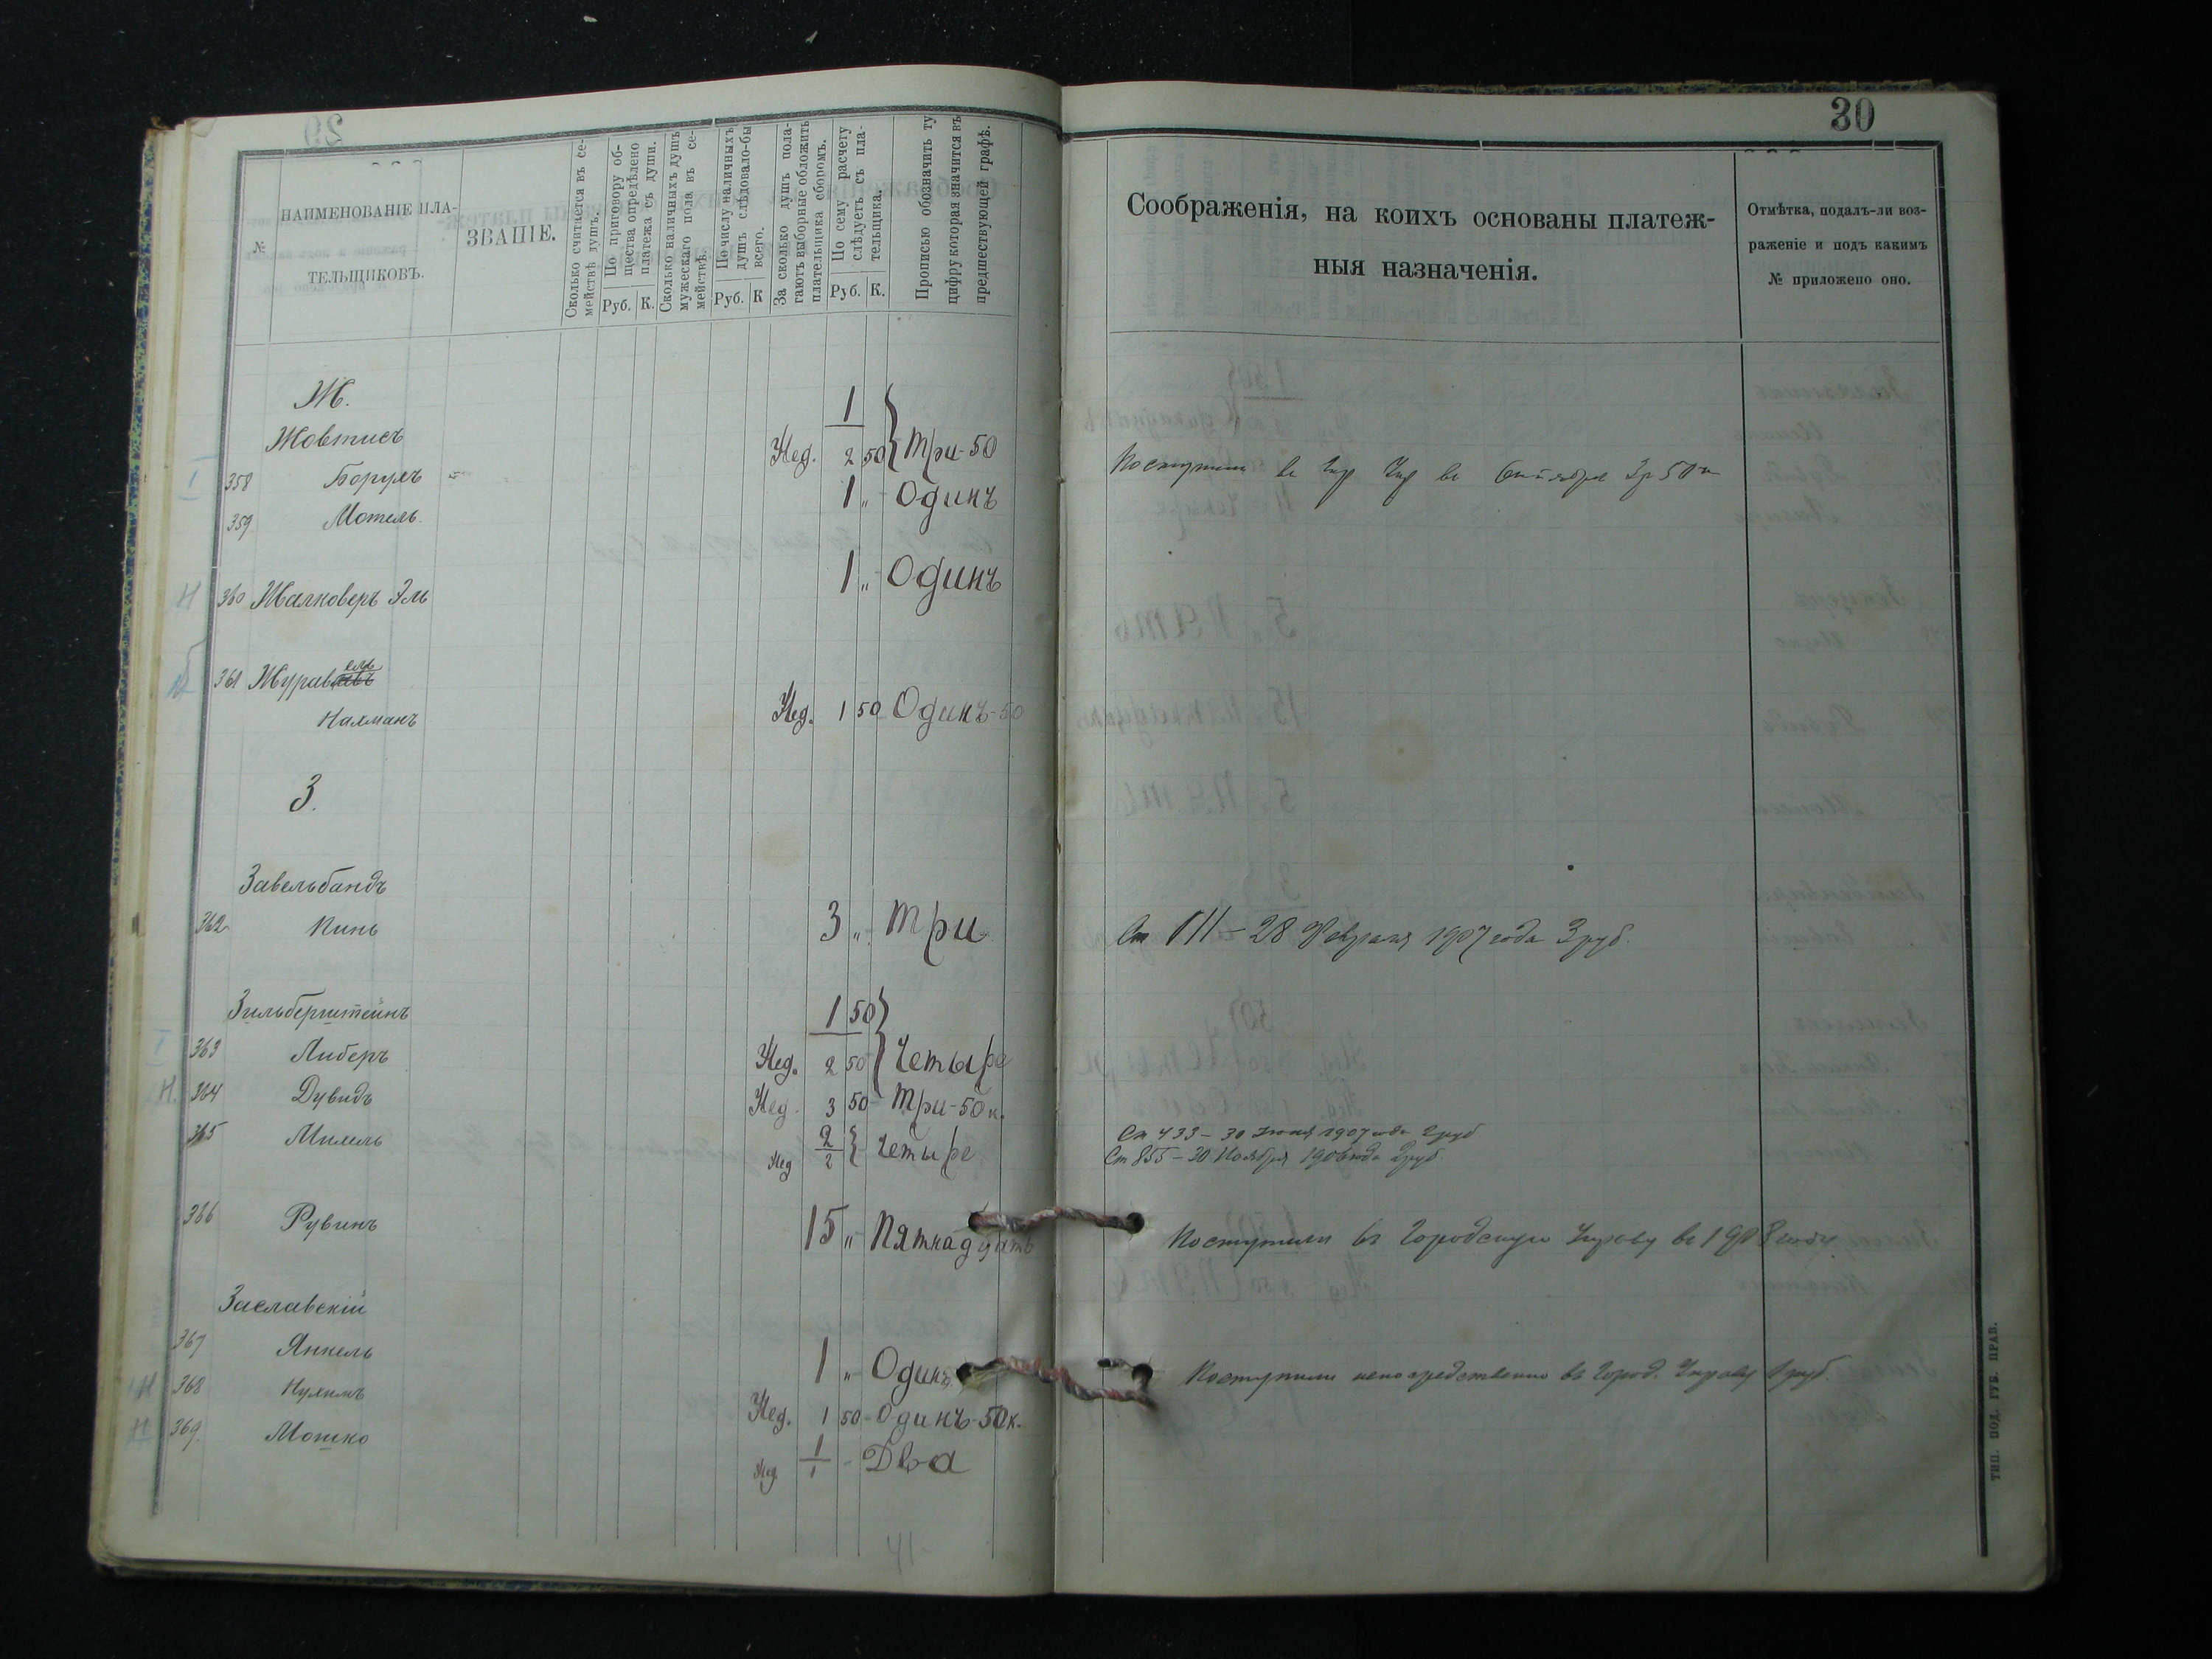 30
№
НАИМЕНОВАНІЕ ПЛА-
ТЕЛЬЩИКОВЪ.
ЗВАНІЕ.
Сколько считается въ се-
мействѣ душъ.
По приговору об-
щества опредѣлено
платежа съ души.
Руб. К.
Сколько наличныхъ душъ
мужескаго пола въ се-
мействѣ.
По числу наличныхъ
душъ слѣдовало-бы
всего.
Руб. К
За сколько душъ пола-
гаютъ выборные обложить
плательщика сборомъ.
По сему расчету
слѣдуетъ съ пла-
тельщика.
Руб. К.
Прописью обозначить ту
цифру которая значится въ
предшествующей графѣ.
Соображенія, на коихъ основаны платеж-
ныя назначенія.
Отмѣтка, подалъ-ли воз-
раженіе и подъ какимъ
№ приложено оно.
Ж.
1
Жовтисъ
Нед. 2 50 Три-50
358 Борухъ
359 Мотель 1 „ Одинъ
360 Жалковеръ Эль 1 „ Одинъ
361 Журав
Нахманъ Нед. 1 50 Одинъ-50
З.
Завельбандъ
362 Пинь 3 „ Три
28 Февраля 1907 года 3 руб.
Зильберштейнъ 1 50
363 Либеръ Нед. 2 50 Четыре
364 Дувидъ Нед. 3 50 Три-50 к.
365 Михель 2 Четыре
Нед 2
Ст 433 - 30 Іюня 1907 года 2 руб
Ст 855 - 30 Ноября 1906 года 2 руб.
366 Рувинъ 15 „ Пятнадцать
Поступили въ Городскую Управу въ 1908 году
Заславскій
367 Янкель 1 „ Одинъ
Поступили непосредственно въ Город. Управу 1 руб.
368 Нухимъ Нед. 1 50 Одинъ-50 к.
369. Мошко 1 Два
Нед. 1
41
ТИП. ПОД. ГУБ. ПРАВ.